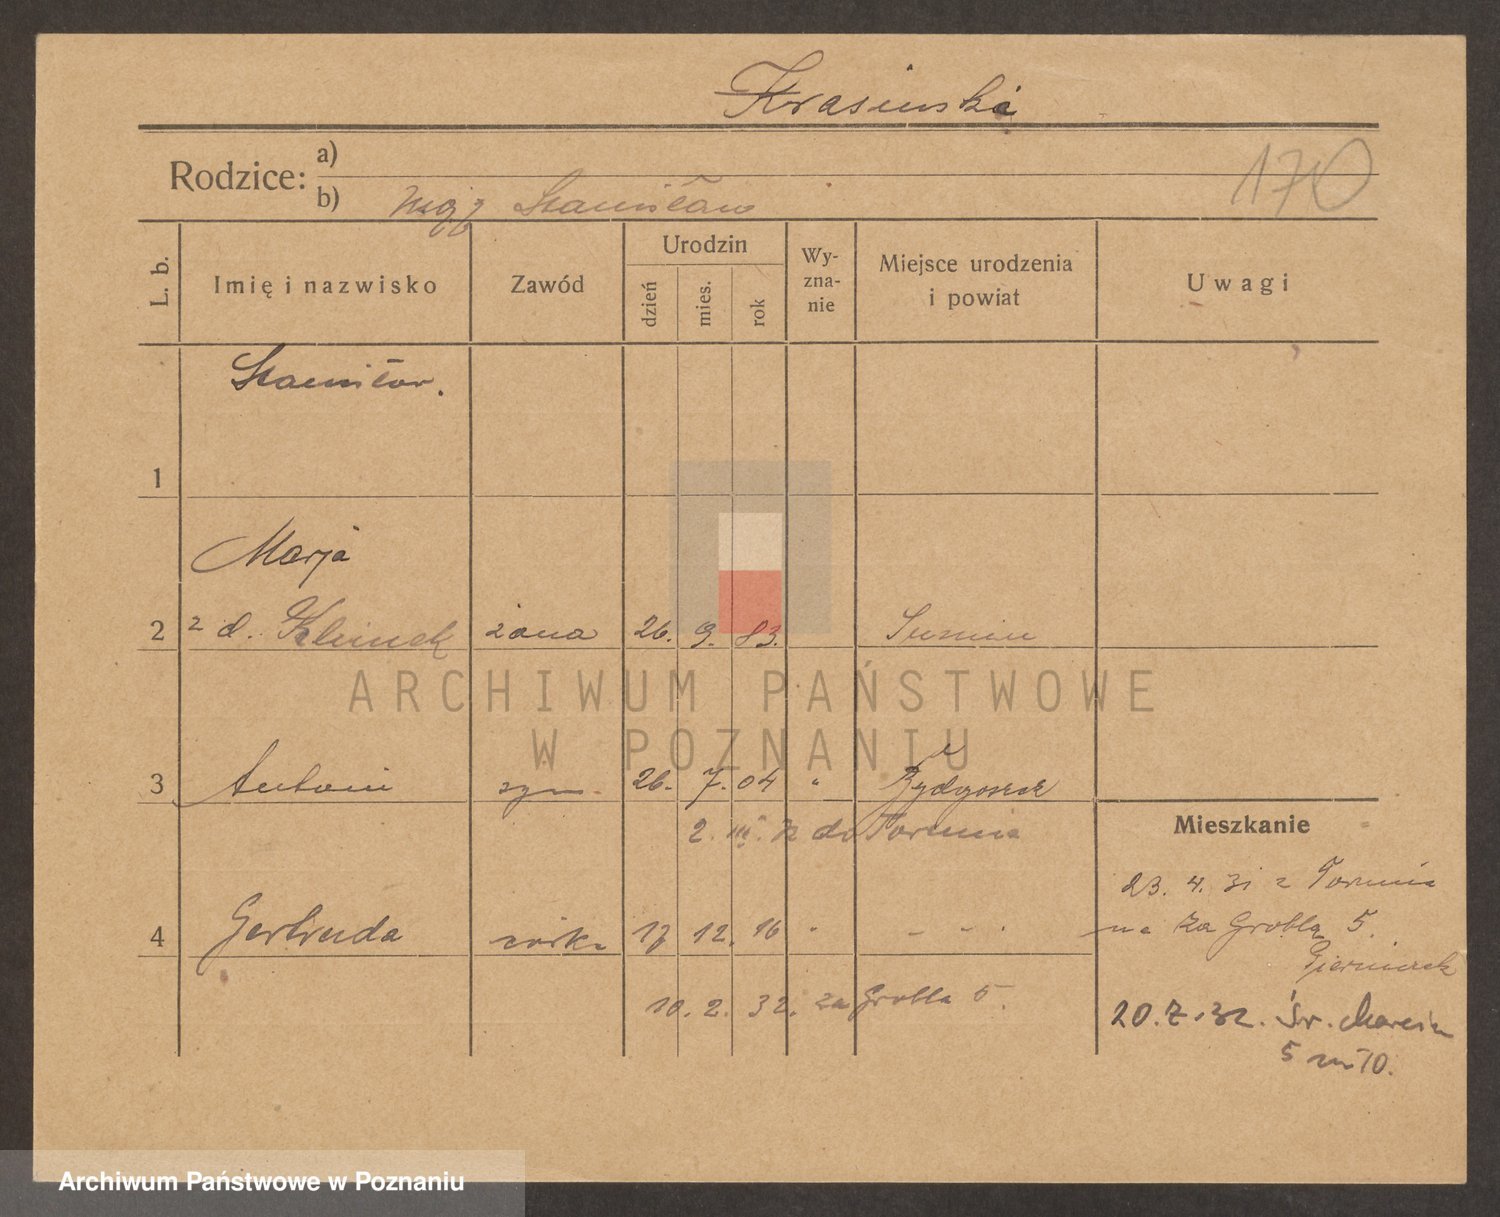 Krasinska
Rodzice:
a)
170
b) mąż Stanisław
L. b.
Imię i nazwisko
Zawód
Urodzin
dzień
mies.
rok
Wy-
zna-
nie
Miejsce urodzenia
i powiat
Uwagi
Stanisław.
1
Marja
2 z d. Klimek żona 26. 9. 83.
ARCHIWUM PAŃSTWOWE
W POZNANIU
3 Antoni syn 26. 7. 04 " Bydgoszcz
2. III. do Torunia
Mieszkanie
23. 4. 31 z Torunia
4 Gertruda córka 17 12. 16 " - " -
na Za Groblą 5.
10. 2. 32. za Grobla 5.
20. 7. 32. Św. Marcin
5 m 10.
Archiwum Państwowe w Poznaniu